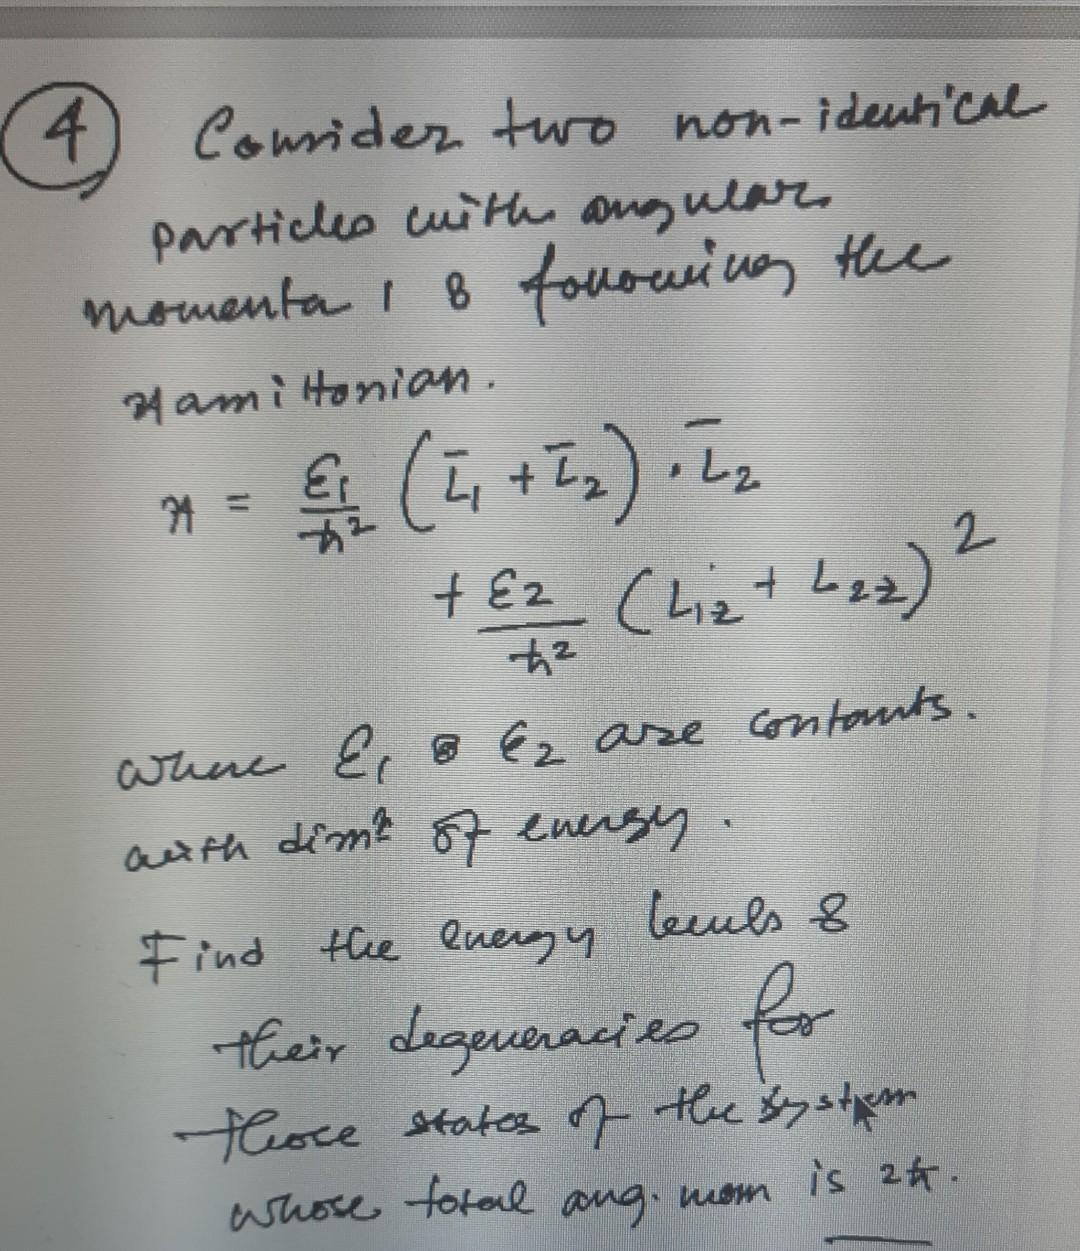 4 Consider two non-identical
particles with angular
momenta 1 & following the
Hamiltonian.
H = ε₁/ħ² (L̄₁ + L̄₂) · L̄₂
+ ε₂/ħ² (L₁z + L₂z)²
where ε₁ & ε₂ are contants.
with dimⁿ of energy.
Find the energy levels &
their degeneracies for
those states of the system
whose total ang. mom is 2ħ.